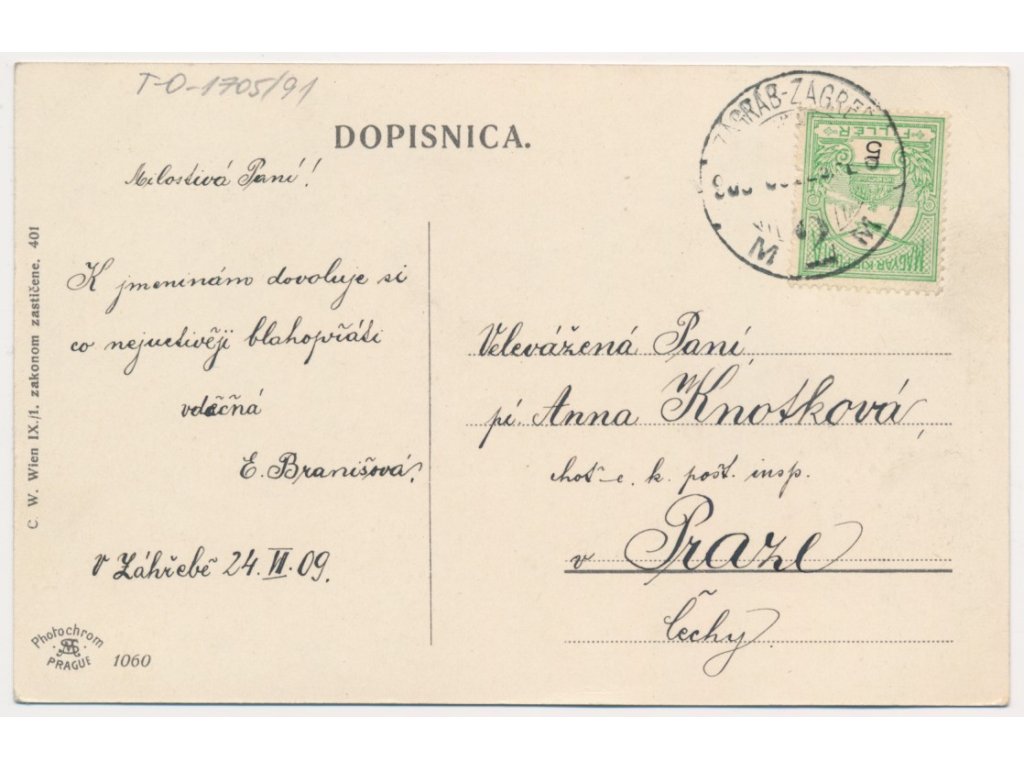 T-O-1705/91
DOPISNICA.
ZÁGRÁB-ZAGREB
FILLÉR
5
MAGYAR KIR. P
Milostivá Paní!
K jmeninám dovoluje si
co nejuctivěji blahopřáti
vděčná
E. Branišová.
v Záhřebě 24. VI. 09.
Velevážená Paní,
pí. Anna Knotková,
chot' c. k. pošt. insp.
v Praze
Čechy.
C. W. Wien IX./1. zakonom zastičene. 401
Photochrom
PRAGUE
1060